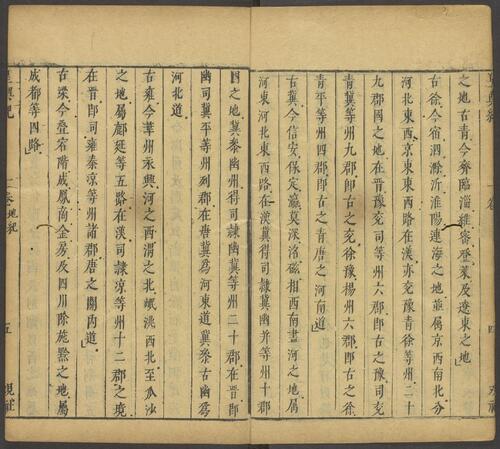 之地古青今齊臨淄濰密登萊及遼東之地
古徐今宿泗滁沂淮陽連海之地並屬京西南北分
河北東西京東東西路在漢亦兗豫青徐等州二十
九郡國之地在晉豫兗司等州六郡即古之豫司兗
青冀等州九郡即古之兗徐豫楊州六郡即古之徐
青平等州四郡即古之青唐之河南道
古冀今信安保定瀛莫深洺磁相西南盡河之地屬
河東河北東西路在漢冀得司隸冀幽并等州十郡
國之地冀參幽州得司隸幽冀等州二十郡在晉即
幽司冀平等州列郡在唐冀為河東道冀參古幽為
河北道
古雍今華州永興河之西渭之北岷洮西北至瓜沙
之地屬鄜延等五路在漢司隸涼等州十二郡之境
在晉即司雍秦涼等州諸郡唐之關內道
古梁今疊宕階成鳳商金房及四川除施黔之地屬
成都等四路
卷 地紀
五